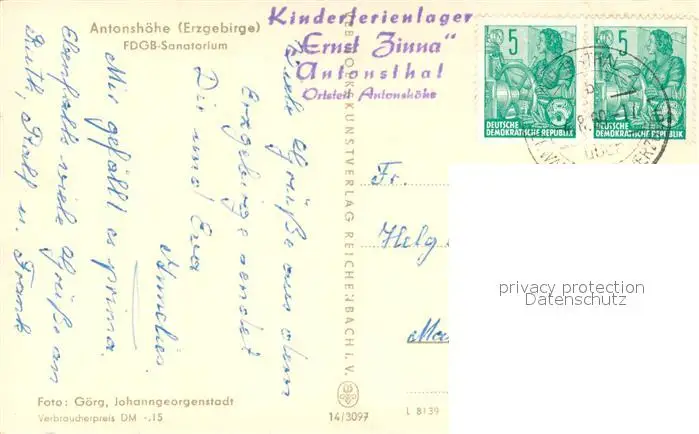 Antonshöhe (Erzgebirge)
FDGB-Sanatorium
Kinderferienlager
"Ernst Zinna"
Antonsthal
Ortsteil Antonshöhe
5
DEUTSCHE
DEMOKRATISCHE REPUBLIK
5
DEUTSCHE
DEMOKRATISCHE REPUBLIK
Viele Grüße aus dem
Erzgebirge sendet
Dir und Eva
Annelies.
Mir gefällt es prima.
Ebenfalls viele Grüße an
Ruth, Ralf u. Frank
KUNSTVERLAG REICHENBACH i. V.
Fr.
Helg
privacy protection
Datenschutz
Foto: Görg, Johanngeorgenstadt
Verbraucherpreis DM -.15
14/3097
L 8139